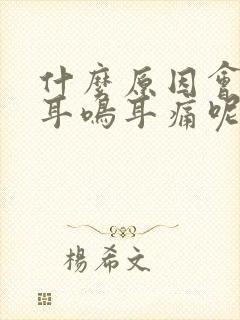 什麼原因會
耳鳴耳痛呢
楊希文